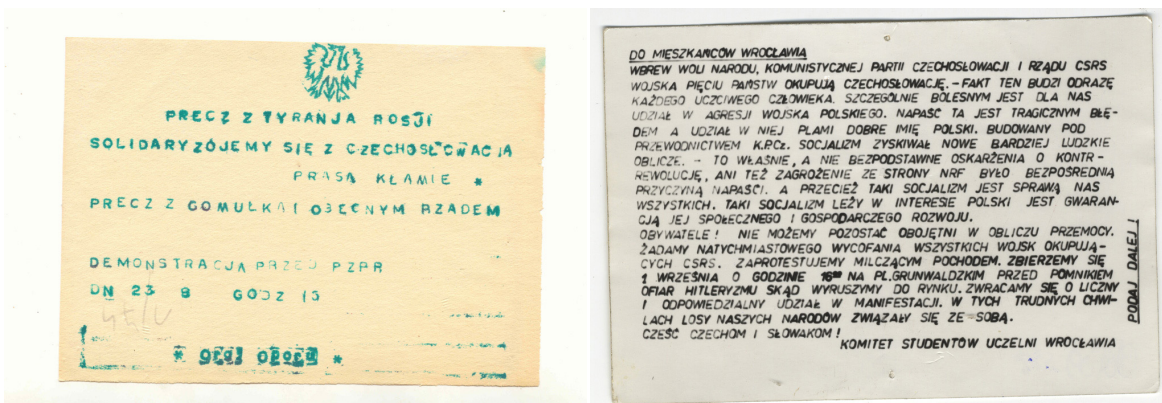 PRECZ Z TYRANJA ROSJI
SOLIDARYZÓJEMY SIĘ Z CZECHOSŁOWACJA
PRASA KŁAMIE *
PRECZ Z GOMUŁKA I OBECNYM RZADEM
DEMONSTRACJA PRZED PZPR
DN 23 8 GODZ 15
DO MIESZKAŃCÓW WROCŁAWIA
WBREW WOLI NARODU, KOMUNISTYCZNEJ PARTII CZECHOSŁOWACJI I RZĄDU CSRS
WOJSKA PIĘCIU PAŃSTW OKUPUJĄ CZECHOSŁOWACJĘ. – FAKT TEN BUDZI ODRAZĘ
KAŻDEGO UCZCIWEGO CZŁOWIEKA. SZCZEGÓLNIE BOLESNYM JEST DLA NAS
UDZIAŁ W AGRESJI WOJSKA POLSKIEGO. NAPAŚĆ TA JEST TRAGICZNYM BŁĘ-
DEM A UDZIAŁ W NIEJ PLAMI DOBRE IMIĘ POLSKI. BUDOWANY POD
PRZEWODNICTWEM K.P.Cz. SOCJALIZM ZYSKIWAŁ NOWE BARDZIEJ LUDZKIE
OBLICZE. – TO WŁAŚNIE, A NIE BEZPODSTAWNE OSKARŻENIA O KONTR-
REWOLUCJĘ, ANI TEŻ ZAGROŻENIE ZE STRONY NRF BYŁO BEZPOŚREDNIĄ
PRZYCZYNĄ NAPAŚCI. A PRZECIEŻ TAKI SOCJALIZM JEST SPRAWĄ NAS
WSZYSTKICH. TAKI SOCJALIZM LEŻY W INTERESIE POLSKI JEST GWARAN-
CJĄ JEJ SPOŁECZNEGO I GOSPODARCZEGO ROZWOJU.
OBYWATELE! NIE MOŻEMY POZOSTAĆ OBOJĘTNI W OBLICZU PRZEMOCY.
ŻĄDAMY NATYCHMIASTOWEGO WYCOFANIA WSZYSTKICH WOJSK OKUPUJĄ-
CYCH CSRS. ZAPROTESTUJEMY MILCZĄCYM POCHODEM. ZBIERZEMY SIĘ
1 WRZEŚNIA O GODZINIE 16⁰⁰ NA PL. GRUNWALDZKIM PRZED POMNIKIEM
OFIAR HITLERYZMU SKĄD WYRUSZYMY DO RYNKU. ZWRACAMY SIĘ O LICZNY
I ODPOWIEDZIALNY UDZIAŁ W MANIFESTACJI. W TYCH TRUDNYCH CHWI-
LACH LOSY NASZYCH NARODÓW ZWIĄZAŁY SIĘ ZE SOBĄ.
CZEŚĆ CZECHOM I SŁOWAKOM!
KOMITET STUDENTÓW UCZELNI WROCŁAWIA
PODAJ DALEJ!